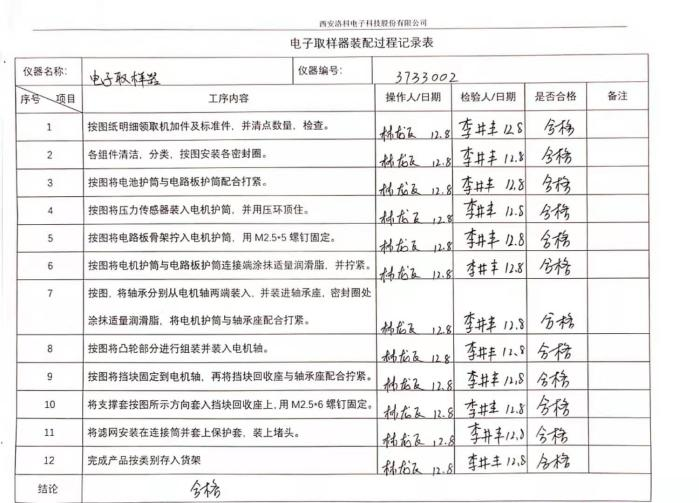 西安洛科电子科技股份有限公司
电子取样器装配过程记录表
仪器名称： 电子取样器 仪器编号： 3733002
序号 项目 工序内容 操作人/日期 检验人/日期 是否合格 备注
1 按图纸明细领取机加件及标准件，并清点数量，检查。 林龙辰 12.8 李井丰 12.8 合格
2 各组件清洁，分类，按图安装各密封圈。 林龙辰 12.8 李井丰 12.8 合格
3 按图将电池护筒与电路板护筒配合打紧。 林龙辰 12.8 李井丰 12.8 合格
4 按图将压力传感器装入电机护筒，并用压环顶住。 林龙辰 12.8 李井丰 12.8 合格
5 按图将电路板骨架拧入电机护筒，用 M2.5*5 螺钉固定。 林龙辰 12.8 李井丰 12.8 合格
6 按图将电机护筒与电路板护筒连接端涂抹适量润滑脂，并拧紧。 林龙辰 12.8 李井丰 12.8 合格
7 按图，将轴承分别从电机轴两端装入，并装进轴承座，密封圈处
涂抹适量润滑脂，将电机护筒与轴承座配合打紧。 林龙辰 12.8 李井丰 12.8 合格
8 按图将凸轮部分进行组装并装入电机轴。 林龙辰 12.8 李井丰 12.8 合格
9 按图将挡块固定到电机轴，再将挡块回收座与轴承座配合拧紧。 林龙辰 12.8 李井丰 12.8 合格
10 将支撑套按图所示方向套入挡块回收座上，用 M2.5*6 螺钉固定。 林龙辰 12.8 李井丰 12.8 合格
11 将滤网安装在连接筒并套上保护套，装上堵头。 林龙辰 12.8 李井丰 12.8 合格
12 完成产品按类别存入货架 林龙辰 12.8 李井丰 12.8 合格
结论 合格